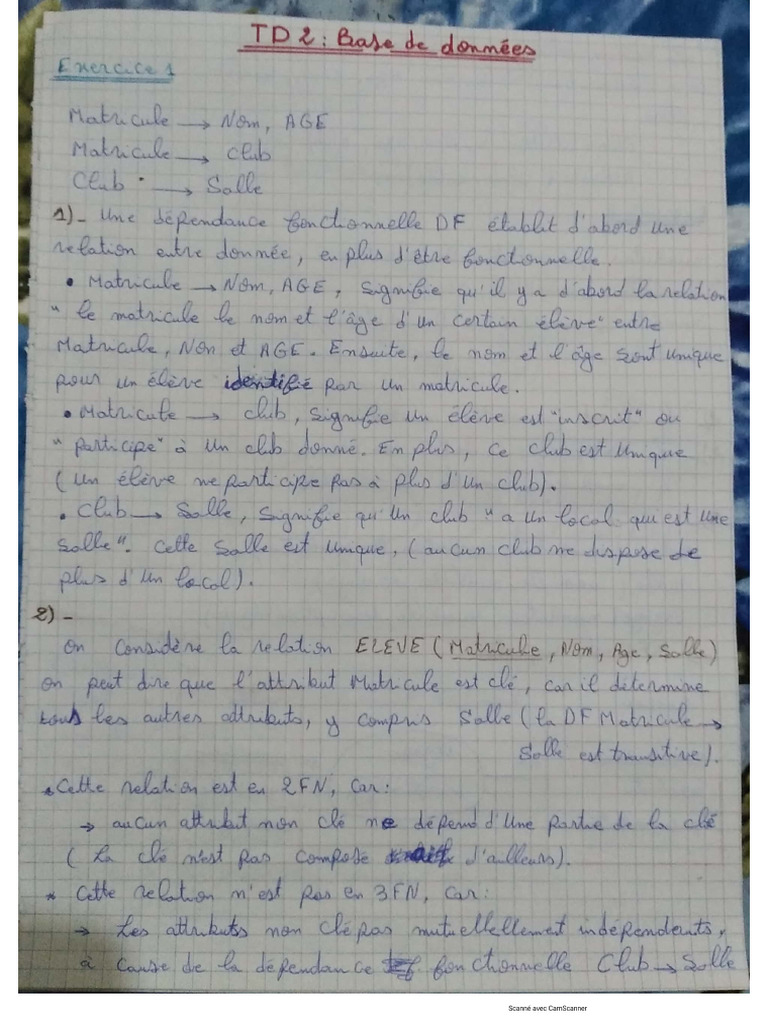 TD 2 : Base de données
Exercice 1
Matricule → Nom, AGE
Matricule → club
Club → Salle
1)- Une dépendance fonctionnelle DF établit d'abord une
relation entre donnée, en plus d'être fonctionnelle.
• Matricule → Nom, AGE, Signifie qu'il y a d'abord la relation
" le matricule le nom et l'âge d'un certain élève" entre
Matricule, Nom et AGE. Ensuite, le nom et l'âge sont unique
pour un élève identifié par un matricule.
• Matricule → club, Signifie un élève est "inscrit" ou
" participe" à un club donné. En plus, ce club est unique
( un élève ne participe pas à plus d'un club).
• Club → Salle, Signifie qu'un club " a un local qui est une
salle". Cette salle est unique, ( aucun club ne dispose de
plus d'un local).
2)-
On considère la relation ELEVE ( Matricule, Nom, Age, Salle)
on peut dire que l'attribut Matricule est clé, car il détermine
tous les autres attributs, y compris Salle ( la DF Matricule →
Salle est transitive).
* Cette relation est en 2FN, Car:
→ aucun attribut non clé ne dépend d'une partie de la clé
( la clé n'est pas compose d'ailleurs).
* Cette relation n'est pas en 3FN, Car:
→ Les attributs non clé pas mutuellement indépendents,
à cause de la dépendance fonctionnelle Club → Salle
Scanné avec CamScanner